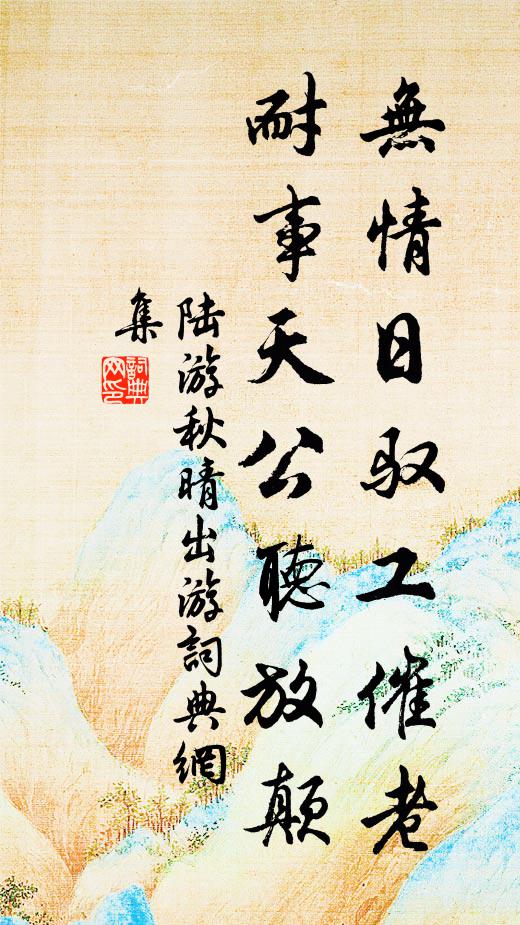 無情日馭工催老
耐事天公聽放顛
陆游秋晴出游詞典網
集
詞典网印